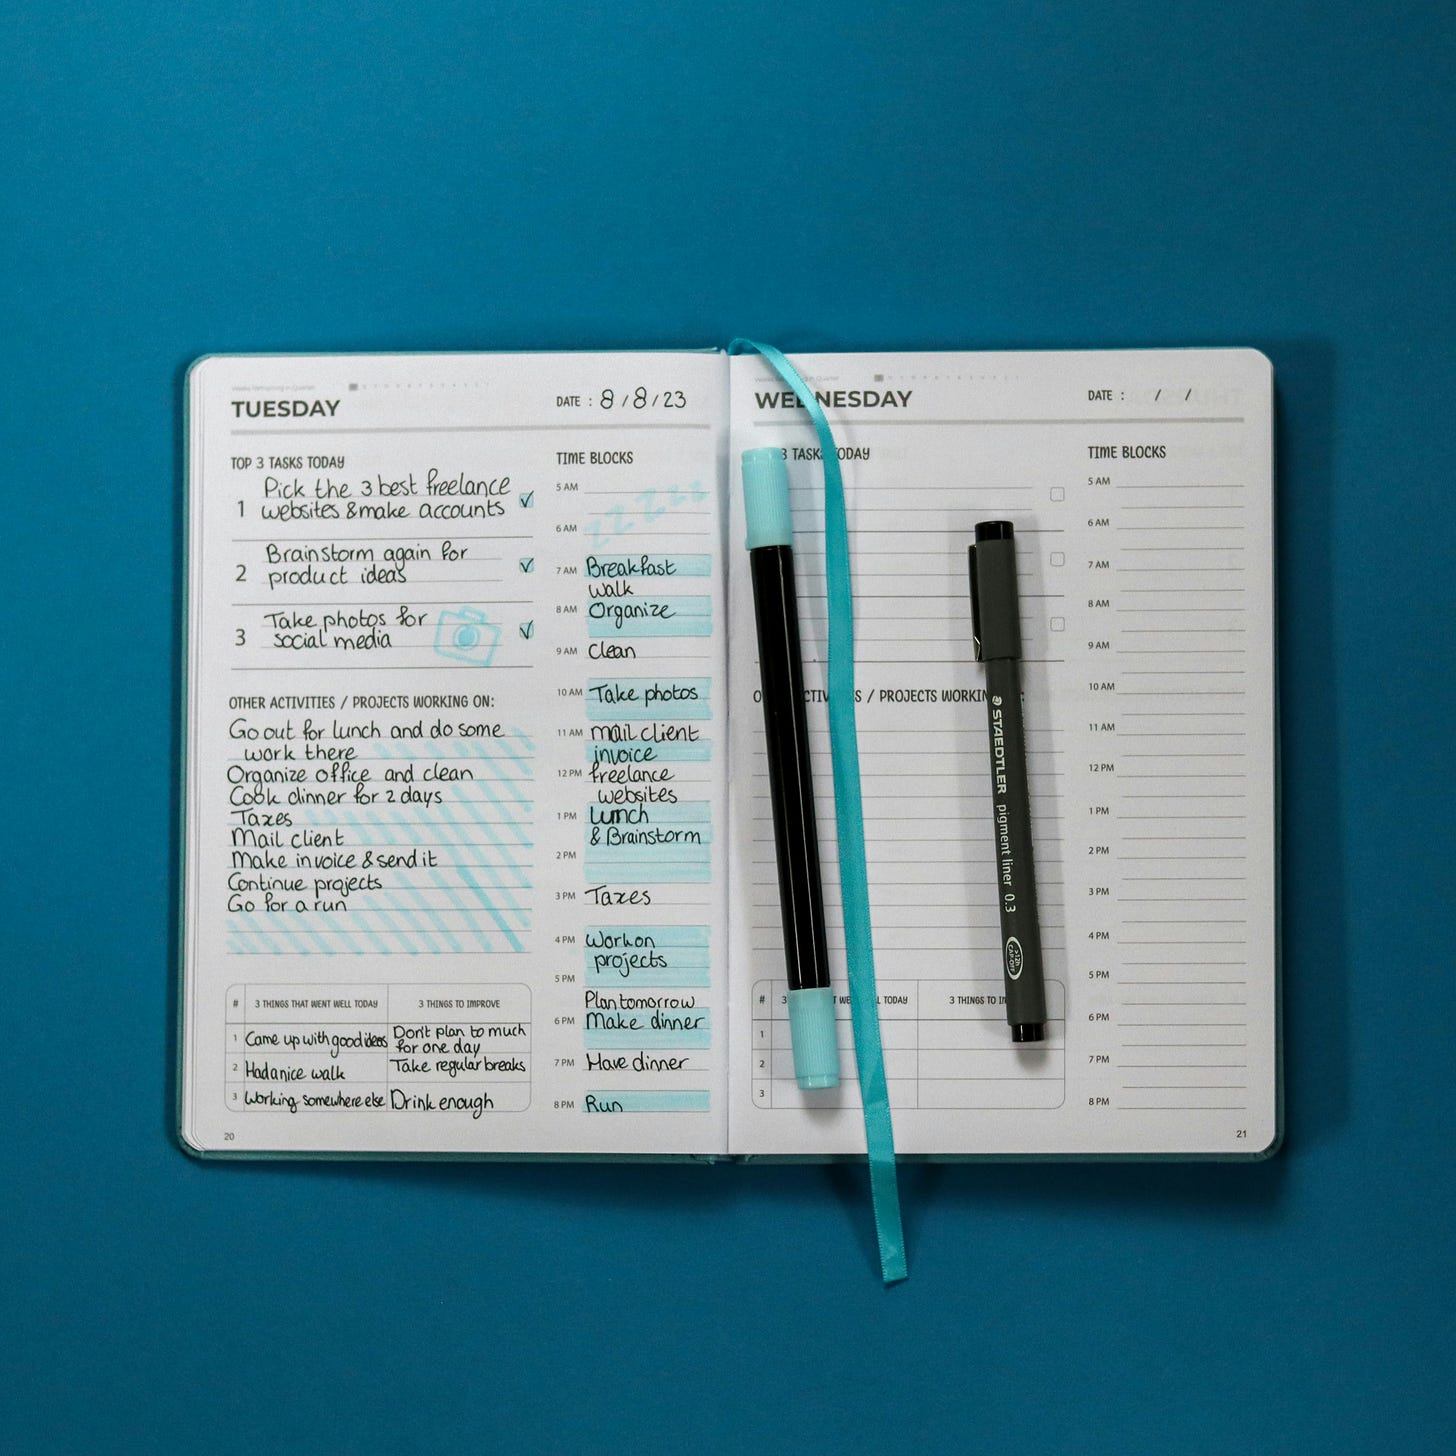 TUESDAY
DATE : 8 / 8 / 23
TOP 3 TASKS TODAY
1 Pick the 3 best freelance
websites & make accounts
2 Brainstorm again for
product ideas
3 Take photos for
social media
OTHER ACTIVITIES / PROJECTS WORKING ON:
Go out for lunch and do some
work there
Organize office and clean
Cook dinner for 2 days
Taxes
Mail client
Make invoice & send it
Continue projects
Go for a run
# 3 THINGS THAT WENT WELL TODAY 3 THINGS TO IMPROVE
1 Came up with good ideas Don't plan to much
for one day
2 Had a nice walk Take regular breaks
3 Working somewhere else Drink enough
20
TIME BLOCKS
5 AM
zzzzzz
6 AM
7 AM Breakfast
walk
8 AM Organize
9 AM Clean
10 AM Take photos
11 AM mail client
invoice
12 PM freelance
websites
1 PM Lunch
& Brainstorm
2 PM
3 PM Taxes
4 PM Work on
projects
5 PM
Plan tomorrow
6 PM Make dinner
7 PM Have dinner
8 PM Run
WEDNESDAY
DATE : / /
3 TASKS TODAY
/ PROJECTS
# TODAY 3 THINGS
1
2
3
TIME BLOCKS
5 AM
6 AM
7 AM
8 AM
9 AM
10 AM
11 AM
12 PM
1 PM
2 PM
3 PM
4 PM
5 PM
6 PM
7 PM
8 PM
21
STAEDTLER pigment liner 0.3